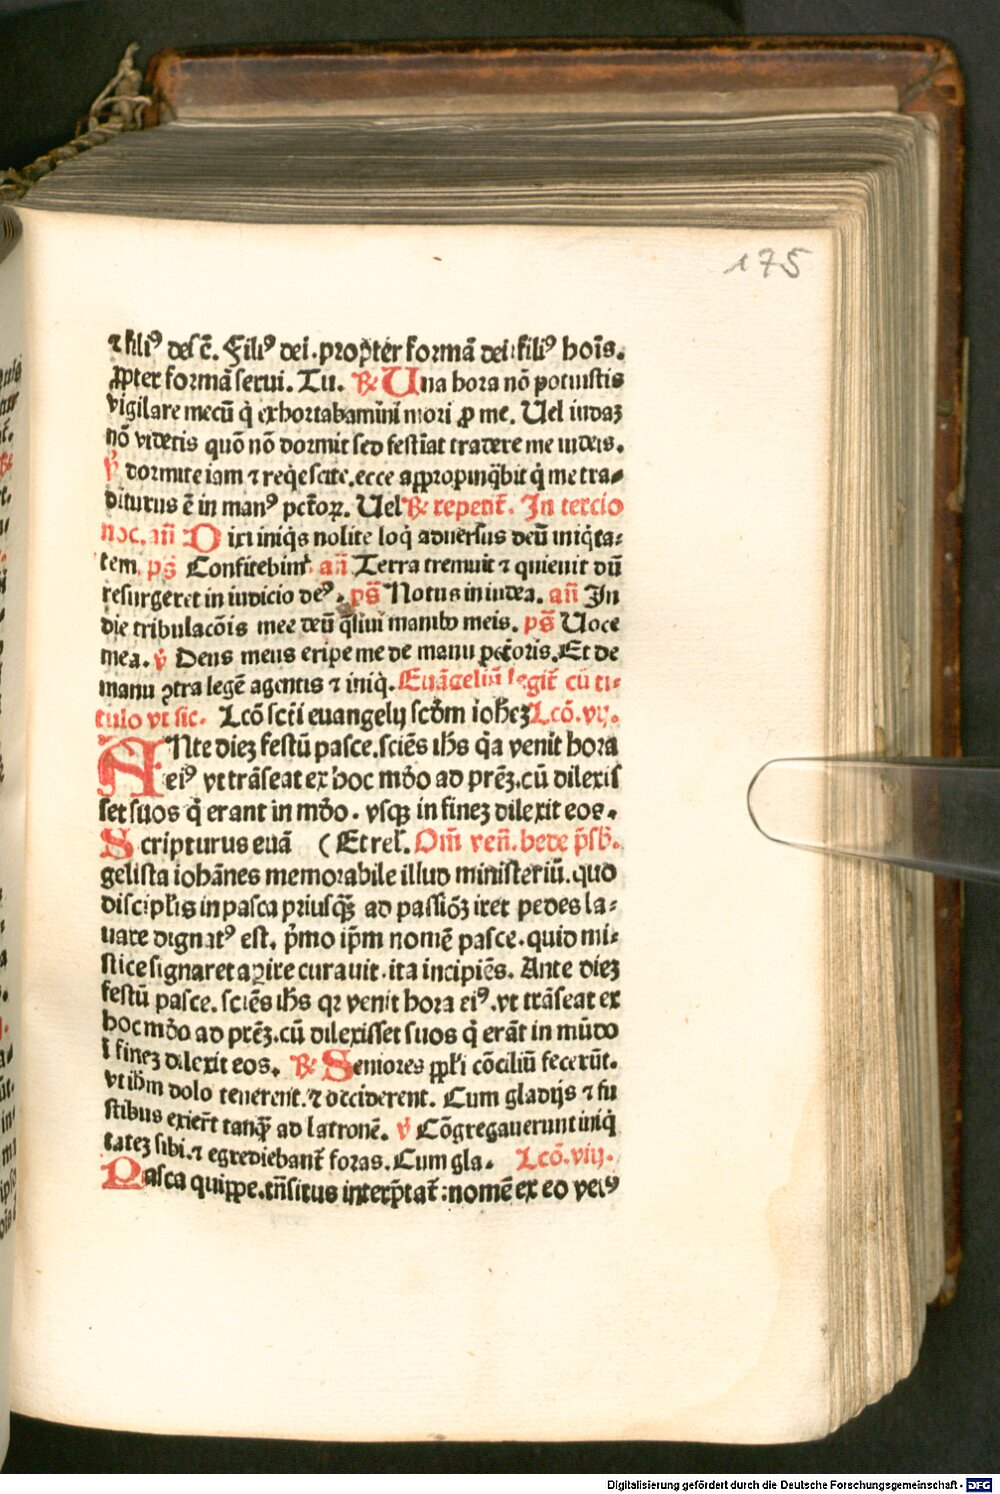 175
⁊ filiꝰ dei ē. Filiꝰ dei. propter formā dei: filiꝰ hoīs.
ꝓpter formā serui. Tu. ℟ Una hora nō potuistis
vigilare mecū q̇ exhortabamini mori ꝓ me. Uel iudaꝫ
nō videtis quō nō dormit sed festīat tradere me iudeis.
℣ dormite iam ⁊ req̇escite. ecce appropinq̇bit q̇ me tra⸗
diturus ē in manꝰ pctōꝝ. Uel ℟ repetit̄. In tercio
noc. añ Dixi iniq̇s nolite loq̇ aduersus deū iniq̇ta⸗
tem. ps̄ Confitebimr̄ añ Terra tremuit ⁊ quieuit dū
resurgeret in iudicio deꝰ. ps̄ Notus in iudea. añ In
die tribulacōis mee deū q̄siui manibꝰ meis. ps̄ Uoce
mea. ℣ Deus meus eripe me de manu pctōris. Et de
manu ꝯtra legē agentis ⁊ iniq̇. Euāgeliū legit̄ cū ti⸗
tulo vt sic. Lcō scti euangelij scd̄m iohēꝫ Lcō. vij.
ANte dieꝫ festū pasce. sciēs ihs q̇a venit hora
eiꝰ vt trāseat ex hoc mōdo ad prēꝫ. cū dilexis
set suos q̇ erant in mōdo. vsqꝫ in fineꝫ dilexit eos.
Scripturus euā (Et rel̄. Om̄ ven̄. bede p̄sb̄.
gelista iohānes memorabile illud ministeriū. quo
discipl̄is in pasca priusq̄ꝫ ad passiōꝫ iret pedes la⸗
uare dignatꝰ est. p̄mo ip̄m nomē pasce. quid mi⸗
stice signaret apire curauit. ita incipiēs. Ante dieꝫ
festū pasce. sciēs ihs qꝛ venit hora eiꝰ. vt trāseat ex
hoc mōdo ad prēꝫ. cū dilexisset suos q̇ erāt in mūdo
ī fineꝫ dilexit eos. ℟ Seniores ppl̄i cōciliū fecerūt.
vt ihm dolo tenerent. ⁊ occiderent. Cum gladijs ⁊ fu
stibus exiert̄ tanq̄ꝫ ad latronē. ℣ Cōgregauerunt iniq̇
tateꝫ sibi. ⁊ egrediebant̄ foras. Cum gla. Lcō. viij.
Pasca quippe. tn̄situs interp̄tat̄: nomē ex eo vetꝰ
Digitalisierung gefördert durch die Deutsche Forschungsgemeinschaft - DFG